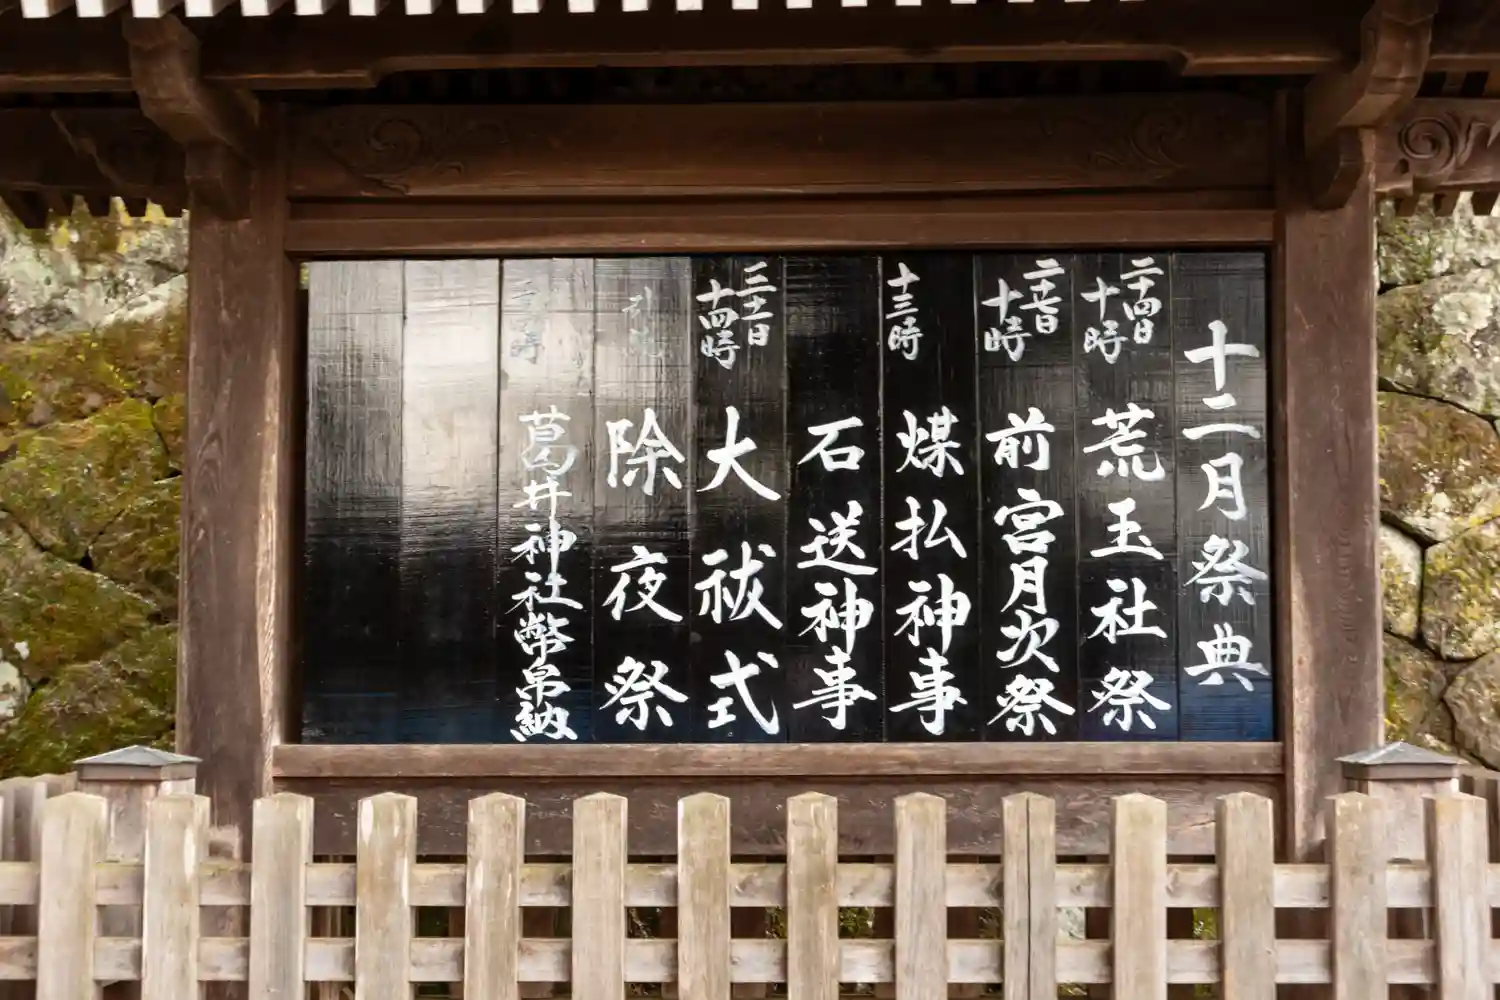 十二月祭典
二十四日 十時 荒玉社祭
二十七日 十時 前宮月次祭
十三時 煤払神事
石送神事
三十一日 十四時 大祓式
引続 除夜祭
二四時 葛井神社幣帛納